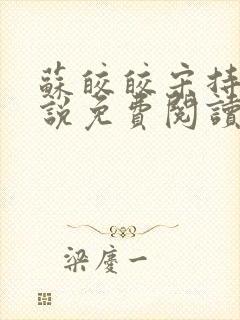 蘇皎皎宋持
說免費閱讀
梁慶一